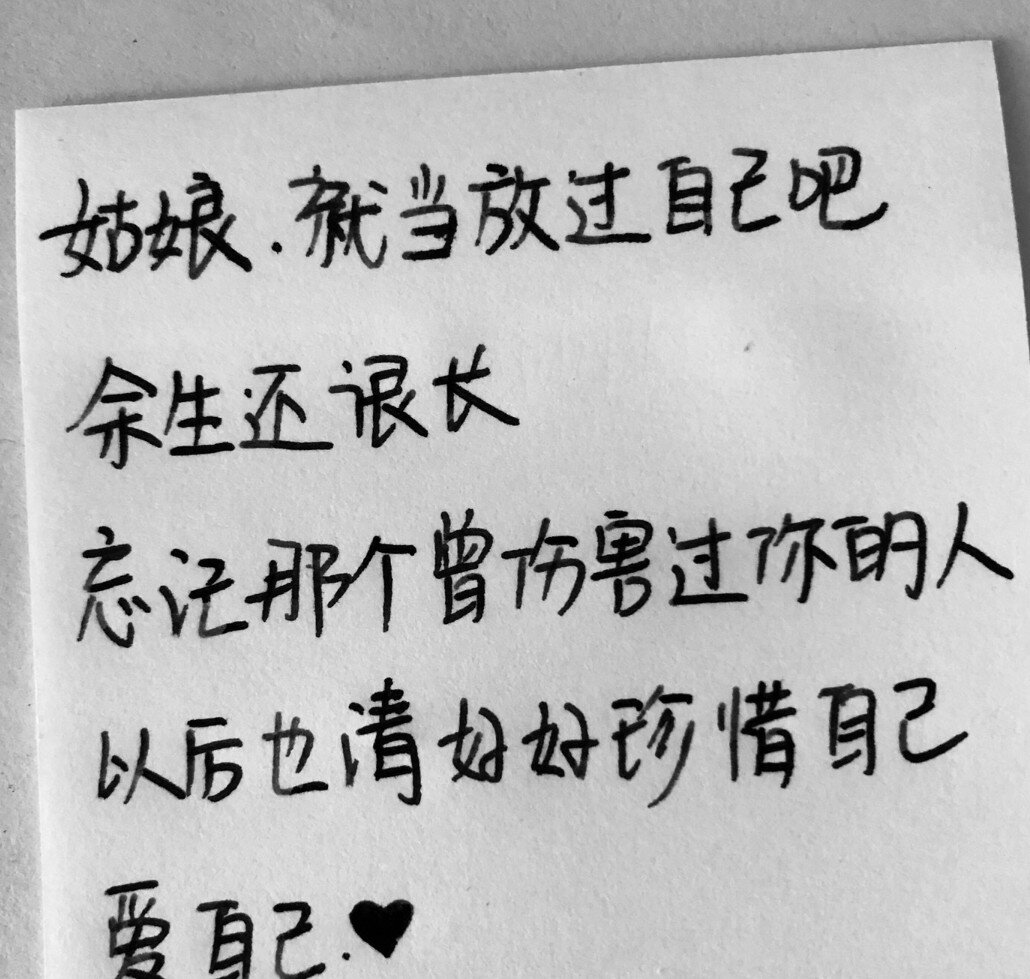 姑娘.就当放过自己吧
余生还很长
忘记那个曾伤害过你的人
以后也请好好珍惜自己
爱自己.♥